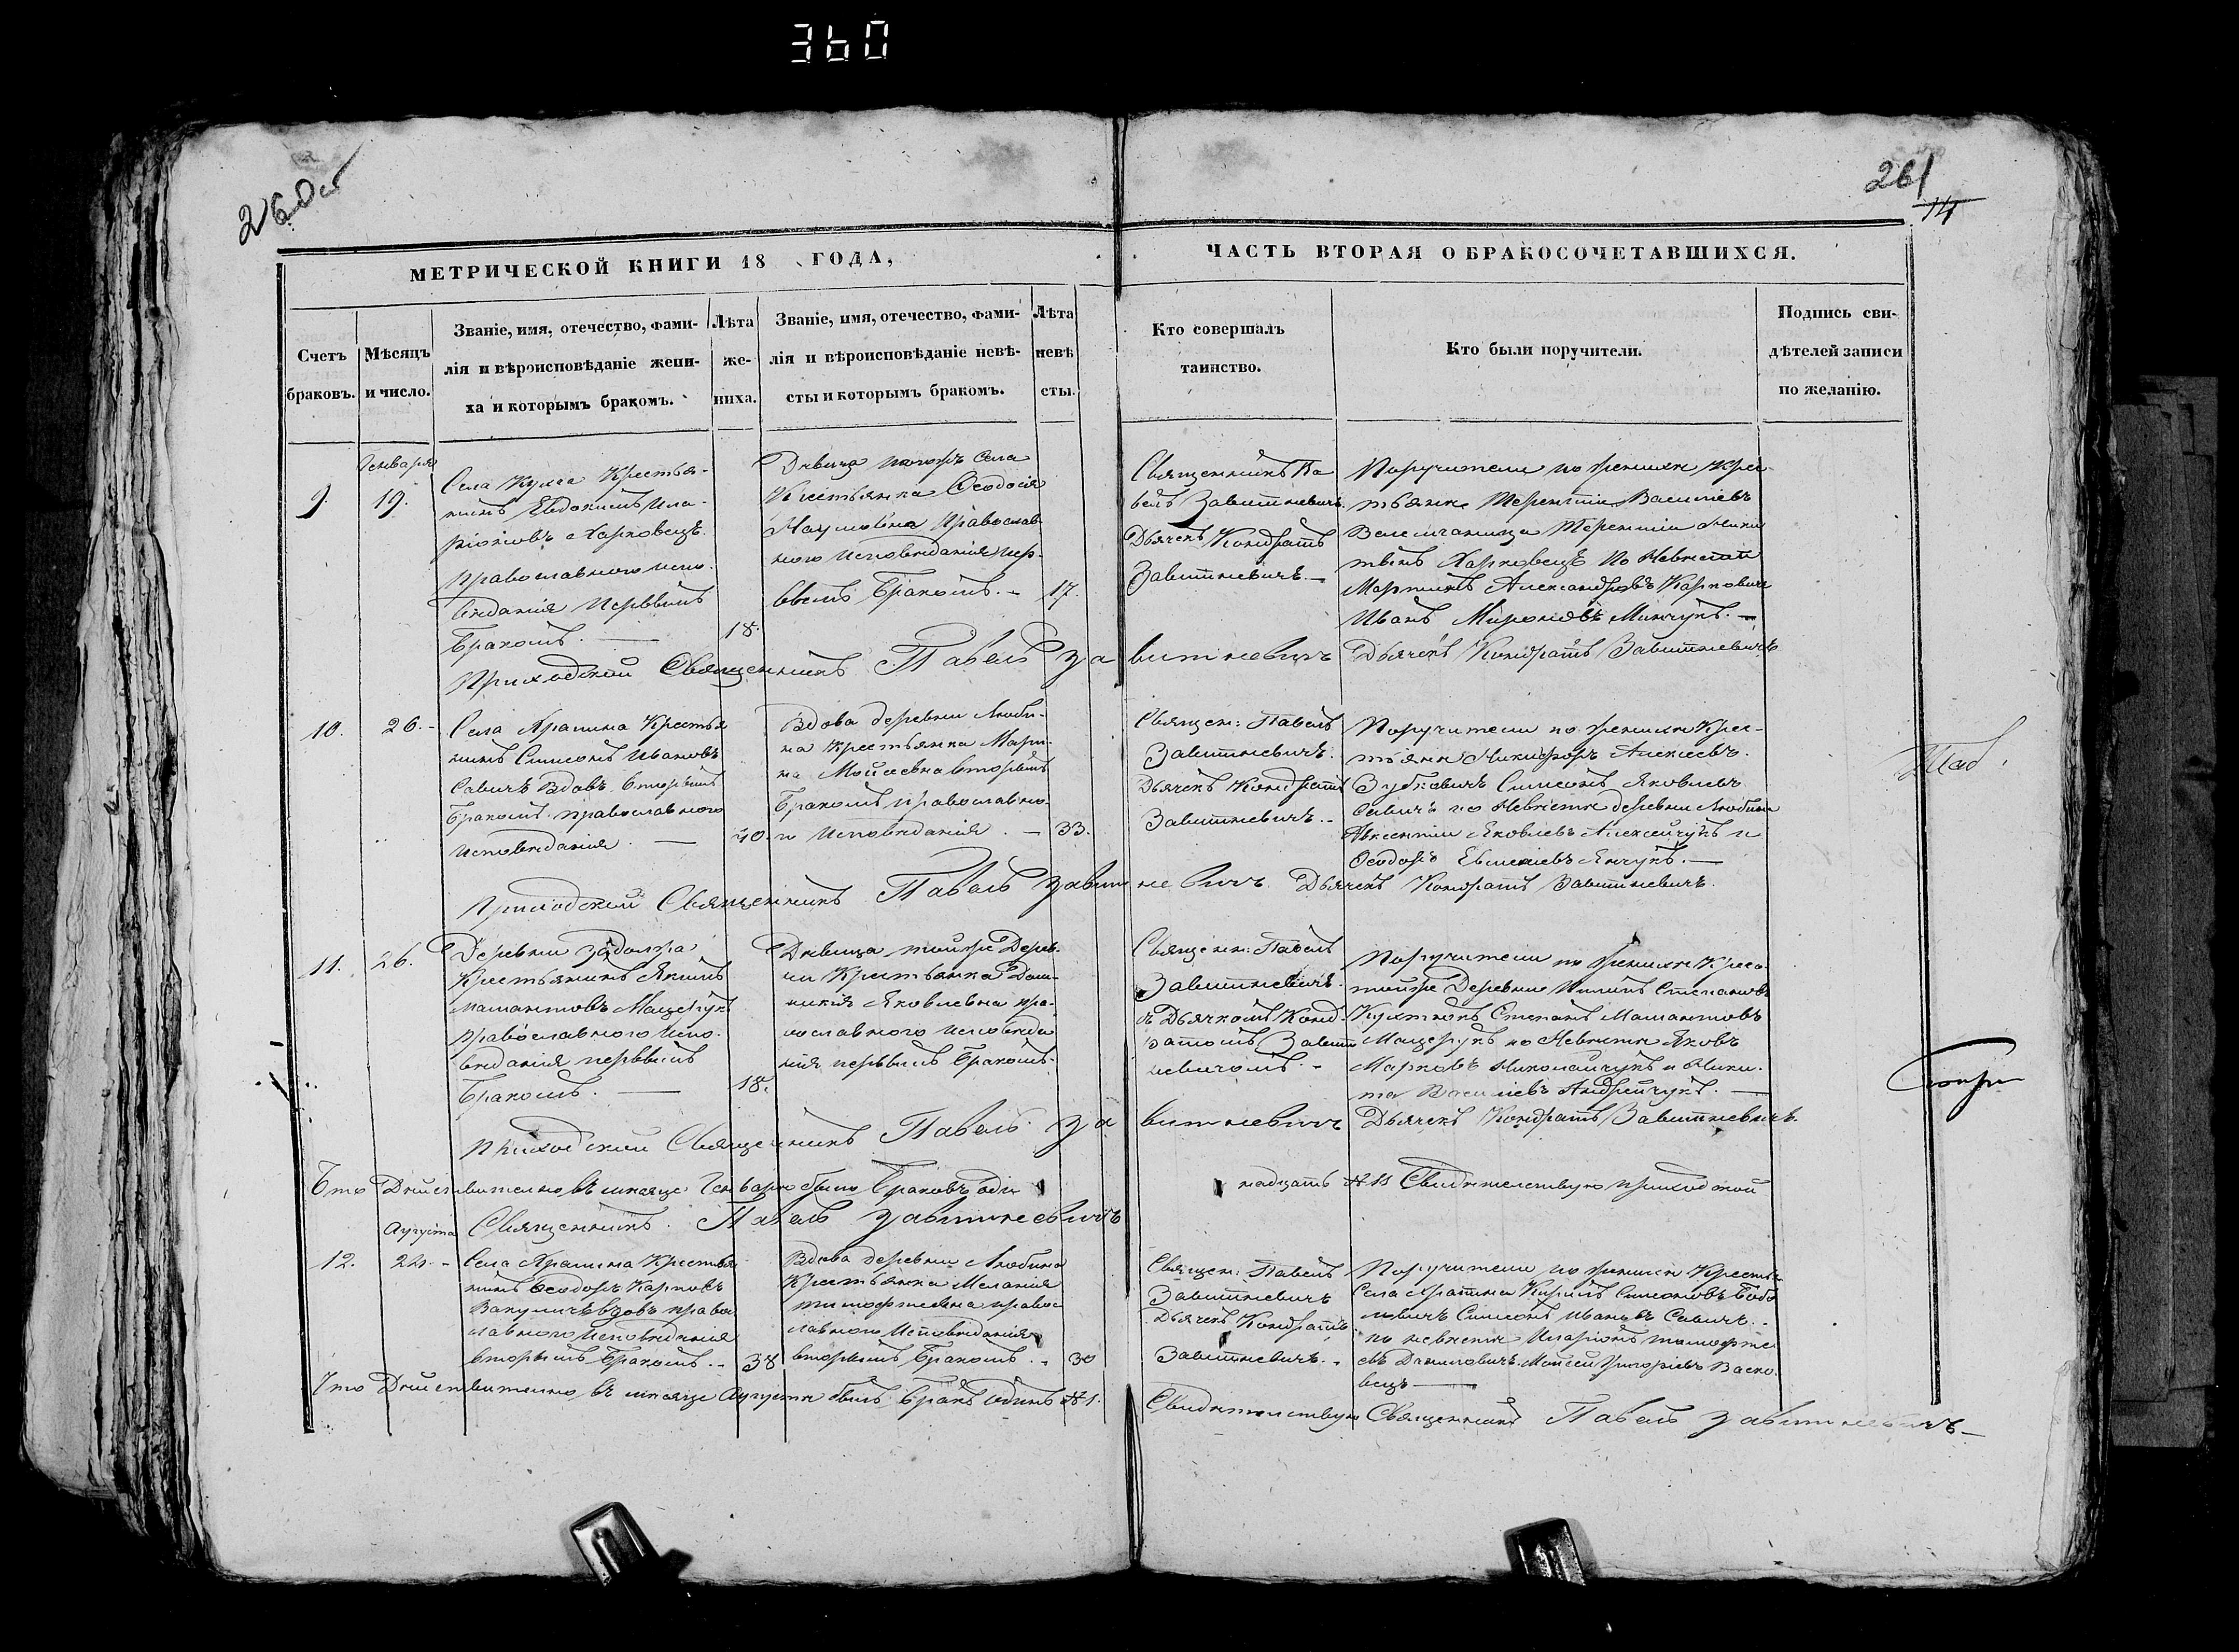 360
260 об
261
14
МЕТРИЧЕСКОЙ КНИГИ 18 ГОДА,
ЧАСТЬ ВТОРАЯ О БРАКОСОЧЕТАВШИХСЯ.
Счетъ
браковъ.
Мѣсяцъ
и число.
Званіе, имя, отечество, фами-
лія и вѣроисповѣданіе жени-
ха и которымъ бракомъ.
Лѣта
же-
ниха.
Званіе, имя, отечество, фами-
лія и вѣроисповѣданіе невѣ-
сты и которымъ бракомъ.
Лѣта
невѣ
сты.
Кто совершалъ
таинство.
Кто были поручители.
Подпись сви-
дѣтелей записи
по желанію.
9.
Генваря
19.
Села Крестья-
нинъ Евдокимъ Ила-
ріоновъ Харковецъ
православного испо-
вѣданія первымъ
бракомъ. —
18.
Дѣвица тогожъ села
Крестьянка Ѳеодосія
Наумовна православ-
ного исповѣданія пер-
вымъ бракомъ. —
17.
Священникъ Па
велъ Завитневичъ
Дьячекъ Кондратъ
Завитневичъ. —
Поручители по женихѣ Крес-
тьяне Терентій Василіевъ
Терентій Ники
тинъ Харковецъ по невѣстѣ
Мартинъ Александровъ Карпович
Иванъ Мироновъ Минчукъ. —
Приходской Священникъ Павелъ Завитневичъ Дьячекъ Кондратъ Завитневичъ
10.
26. -
Села Храпина Крестья
нинъ Симеонъ Ивановъ
Савичъ вдовъ вторымъ
бракомъ православного
исповѣданія. —
40.
Вдова деревни Люби-
на Крестьянка Мари-
на Мойсеевна вторымъ
бракомъ православно-
го исповѣданія. —
33.
Священ: Павелъ
Завитневичъ.
Дьячекъ Кондратъ
Завитневичъ. -
Поручители по женихѣ Крес-
тьяне Никифоръ Алексіевъ
Зубковичъ Симеонъ Яковлевъ
Савичъ по невѣстѣ деревни Любина
Авксентій Яковлевъ Алексійчукъ и
Ѳеодоръ Янчукъ. —
Приходской Священникъ Павелъ Завитневичъ Дьячекъ Кондратъ Завитневичъ.
11.
26.
Деревни Задолжа
Крестьянинъ Якимъ
Мамантовъ Мацерукъ
православного испо-
вѣданія первымъ
бракомъ. —
18.
Дѣвица тойже дерев-
ни Крестьянка Дом-
никія Яковлевна пра-
вославного исповѣда
нія первымъ бракомъ.
Священн: Павелъ
Завитневичъ.
съ Дьячкомъ Конд-
ратомъ Завит
невичомъ. -
Поручители по женихѣ Крест
тойже деревни Степановъ
Степанъ Мамантовъ
Мацерукъ по невѣстѣ Яковъ
Марковъ Николайчукъ и Ники-
та Василіевъ Андрейчукъ. —
Приходский Священникъ Павелъ Завитневичъ Дьячекъ Кондратъ Завитневичъ.
Что дѣйствительно въ мѣсяцѣ Генварѣ было браковъ один надцать № 11 Свидѣтельствую приходской
Священникъ. Павелъ Завитневичъ
12.
Августа
22. -
Села Храпина Крестья
нинъ Ѳеодоръ Карповъ
Вакуличъ вдовъ право
славного исповѣданія
вторымъ бракомъ. -
38
Вдова деревни Любина
Крестьянка Меланія
Тимофѣевна право
славного исповѣданія
вторымъ бракомъ. -
30
Священ: Павелъ
Завитневичъ
Дьячекъ Кондратъ
Завитневичъ. -
Поручители по женихѣ Крестья
Села Храпина Кирилъ Симоновъ Бобо
Симеонъ Ивановъ Савичъ. -
по невѣстѣ Иларіонъ Тимофѣе
въ Даниловичъ Мойсей Григоріевъ Васко-
вецъ —
Что дѣйствительно въ мѣсяцѣ Августѣ былъ бракъ одинъ № 1. Свидѣтельствую Священникъ Павелъ Завитневичъ —